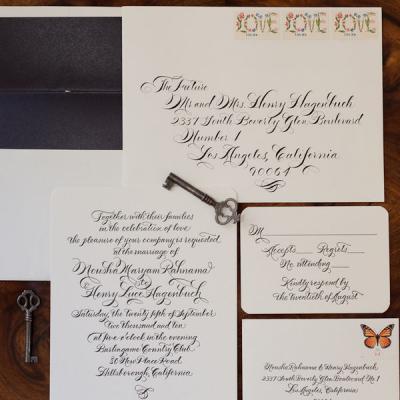 LOVE LOVE LOVE
The Future
Mr and Mrs. Henry Hagenbuch
2337 South Beverly Glen Boulevard
Number 1
Los Angeles, California
90064
Together with their families
in the celebration of love
the pleasure of your company is requested
at the marriage of
Mousha Maryam Rahnama
to
Henry Luce Hagenbuch
Saturday, the twenty fifth of September
two thousand and ten
at five o'clock in the evening
Burlingame Country Club
80 New Place Road
Hillsborough, California
M
Accepts Regrets
No. attending
Kindly respond by
the twentieth of August
Mousha Rahnama & Henry Hagenbuch
2337 South Beverly Glen Boulevard No. 1
Los Angeles, California